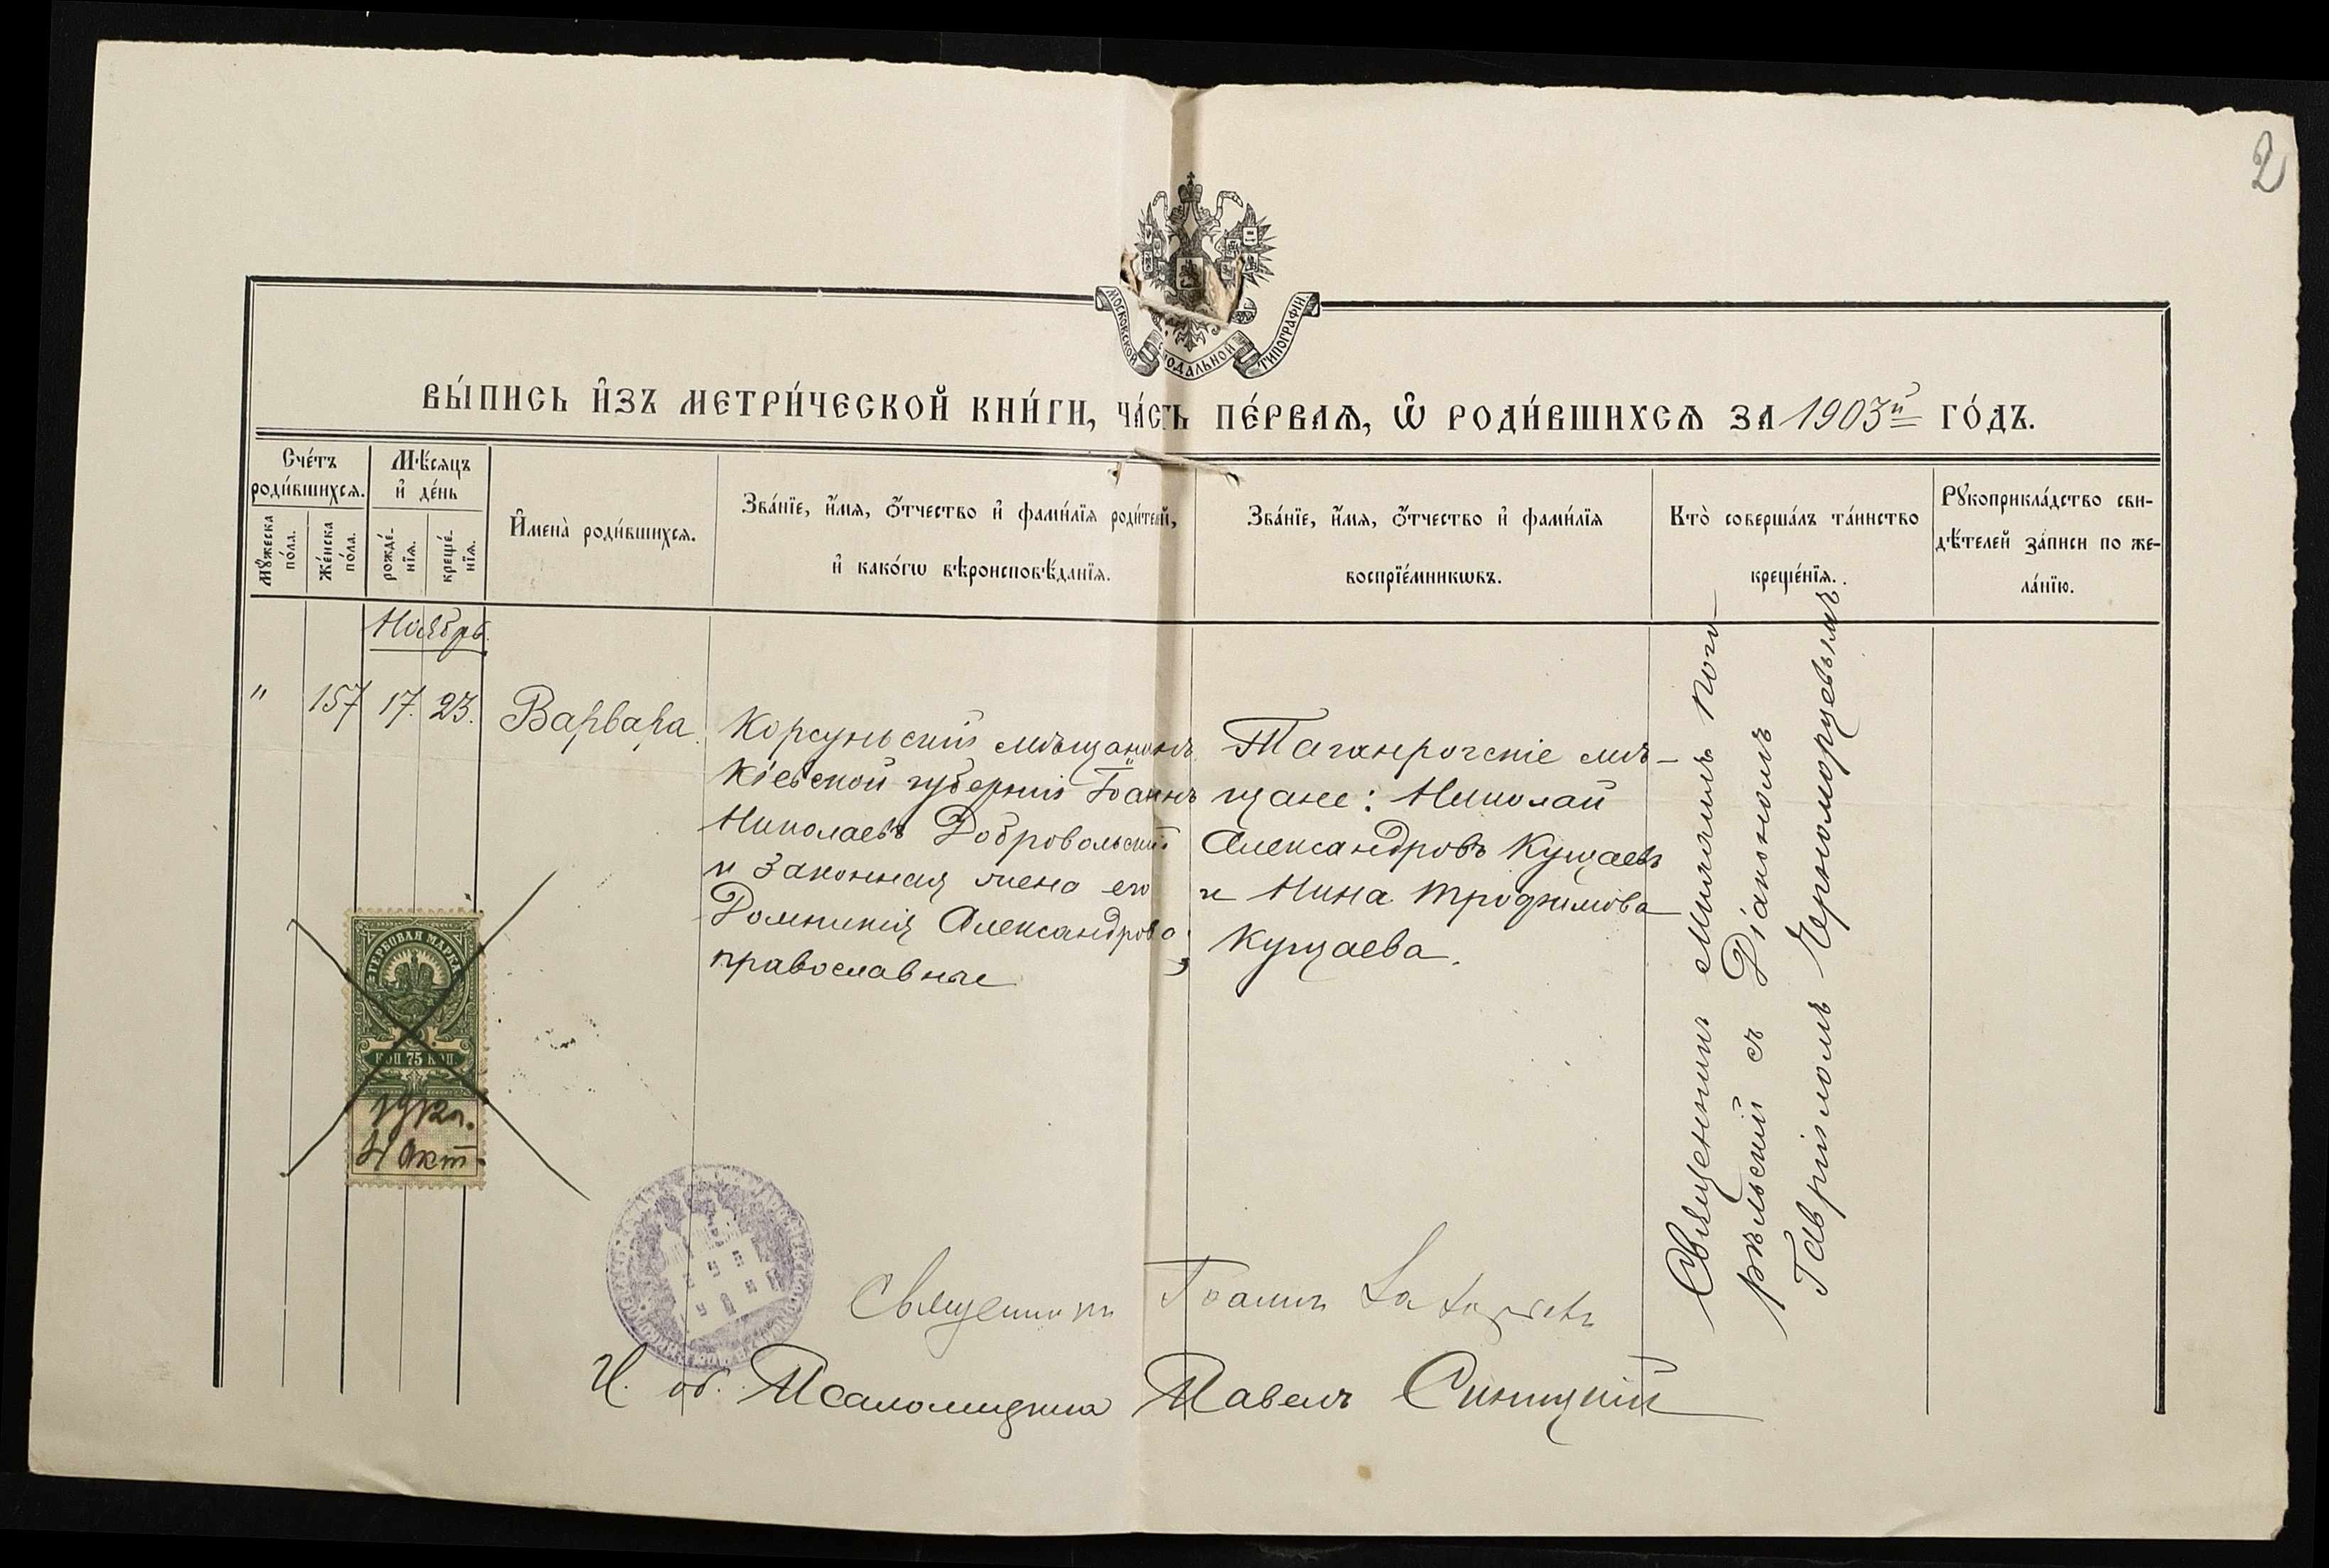 2
МОСКОВСКОЙ СѴНОДАЛЬНОЙ ТИПОГРАФІИ.
ВЫ́ПИСЬ И҆ЗЪ МЕТРИ́ЧЕСКОЙ КНИ́ГИ, ЧА́СТЬ ПЕ́РВАѦ, Ѡ҆ РОДИ́ВШИХСѦ ЗА 1903й ГО́ДЪ.
Сче́тъ роди́вшихсѧ.
Мꙋ́жеска по́ла.
Же́нска по́ла.
Мѣ́сѧцъ и҆ де́нь
рожде́нїѧ.
креще́нїѧ.
И҆мена̀ роди́вшихсѧ.
Зва́нїе, и҆́мѧ, ѻ҆́тчество и҆ фами́лїѧ роди́телей,
и҆ како́гѡ вѣроисповѣ́данїѧ.
Зва́нїе, и҆́мѧ, ѻ҆́тчество и҆ фами́лїѧ
воспрїе́мникѡвъ.
Кто̀ соверша́лъ та́инство
креще́нїѧ.
Рꙋкоприкла́дство сви-
дѣ́телей за́писи по же-
ла́нїю.
Ноябрь.
" 157 17. 23. Варвара
Корсуньскій мѣщанинъ
Кіевской губерніи Іоаннъ
Николаевъ Добровольскій
и законная жена его
Домникія Александрова;
православные
Таганрогскіе мѣ-
щане: Николай
Александровъ Кущаевъ
и Нина Трофимова
Кущаева.
Священникъ
рѣльскій съ Діакономъ
Гавріиломъ Черноморцевымъ.
ГЕРБОВАЯ МАРКА
КОП 75 КОП
1912г.
Окт.
Священникъ Іоаннъ
И. об. Псаломщика Павелъ Синицкій